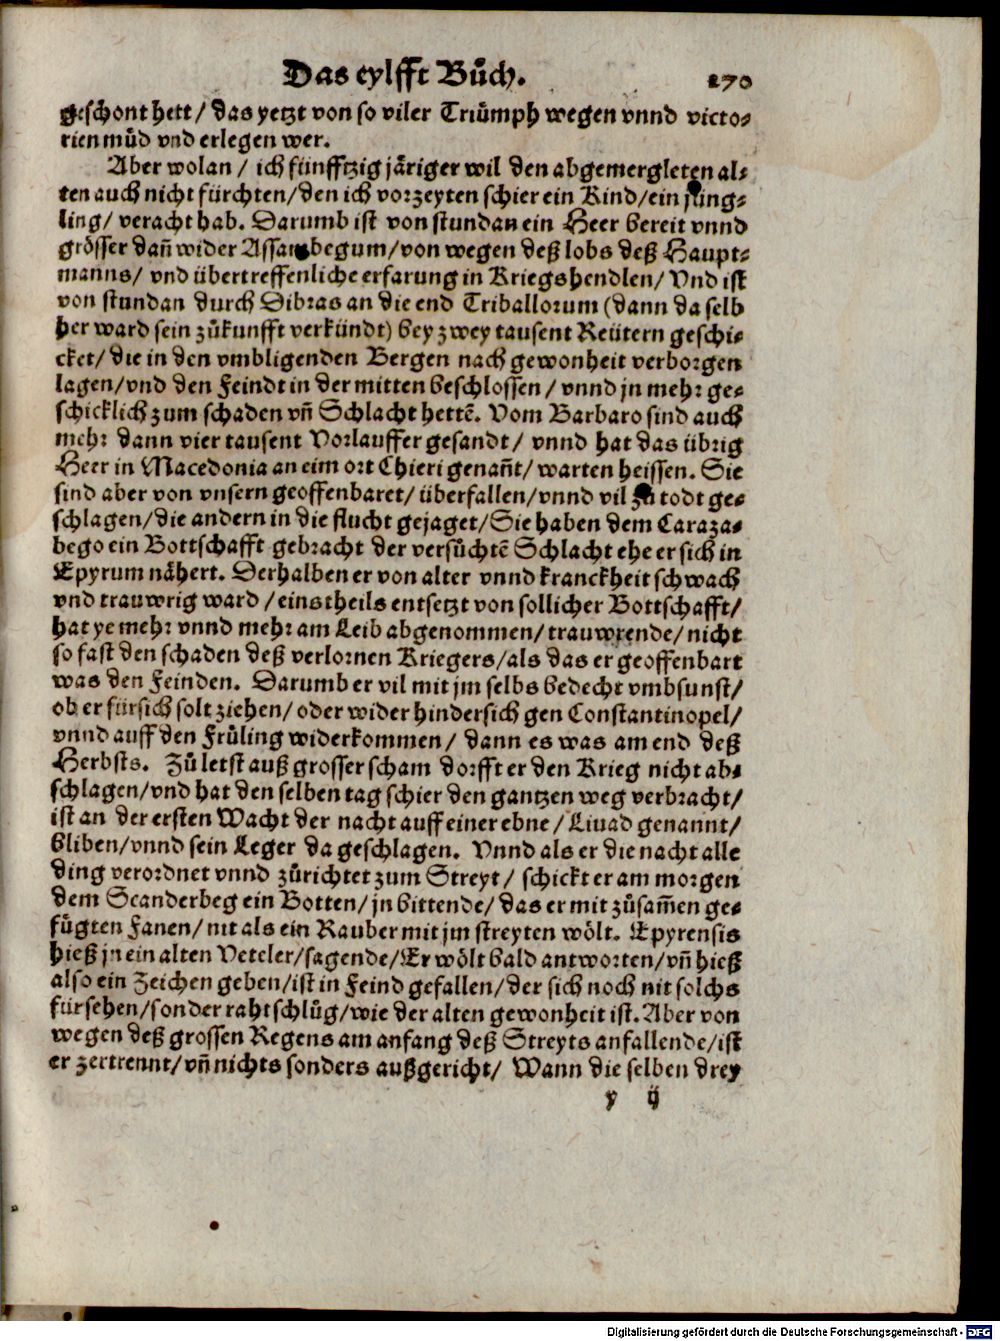 Das eylfft Bůch. 270
geschont hett / das yetzt von so viler Triůmph wegen vnnd victo⸗
rien můd vnd erlegen wer.
Aber wolan / ich fünfftzig järiger wil den abgemergleten al⸗
ten auch nicht fürchten / den ich vorzeyten schier ein Kind / ein jüng⸗
ling / veracht hab. Darumb ist von stundan ein Heer bereit vnnd
grösser dañ wider Assambegum / von wegen deß lobs deß Haupt⸗
manns / vnd übertreffenliche erfarung in Kriegshendlen / Vnd ist
von stundan durch Dibras an die end Triballorum (dann da selb
her ward sein zůkunfft verkündt) bey zwey tausent Reütern geschi⸗
cket / die in den vmbligenden Bergen nach gewonheit verborgen
lagen / vnd den Feindt in der mitten beschlossen / vnnd jn mehr ge⸗
schicklich zum schaden vñ Schlacht hettē. Vom Barbaro sind auch
mehr dann vier tausent Vorlauffer gesandt / vnnd hat das übrig
Heer in Macedonia an eim ort Chieri genañt / warten heissen. Sie
sind aber von vnsern geoffenbaret / überfallen / vnnd vil zů todt ge⸗
schlagen / die andern in die flucht gejaget / Sie haben dem Caraza⸗
bego ein Bottschafft gebracht der versůchtē Schlacht ehe er sich in
Epyrum nähert. Derhalben er von alter vnnd kranckheit schwach
vnd trauwrig ward / eins theils entsetzt von sollicher Bottschafft /
hat ye mehr vnnd mehr am Leib abgenommen / trauwrende / nicht
so fast den schaden deß verlornen Kriegers / als das er geoffenbart
was den Feinden. Darumb er vil mit jm selbs bedecht vmbsunst /
ob er fürsich solt ziehen / oder wider hindersich gen Constantinopel /
vnnd auff den Früling widerkommen / dann es was am end deß
Herbsts. Zů letst auß grosser scham dorfft er den Krieg nicht ab⸗
schlagen / vnd hat den selben tag schier den gantzen weg verbracht /
ist an der ersten Wacht der nacht auff einer ebne / Liuad genannt /
bliben / vnnd sein Leger da geschlagen. Vnnd als er die nacht alle
ding verordnet vnnd zůrichtet zum Streyt / schickt er am morgen
dem Scanderbeg ein Botten / jn bittende / das er mit zůsam̃en ge⸗
fügten Fanen / nit als ein Rauber mit jm streyten wölt. Epyrensis
hieß jn ein alten Veteler / sagende / Er wölt bald antworten / vñ hieß
also ein Zeichen geben / ist in Feind gefallen / der sich noch nit solchs
fürsehen / sonder rahtschlůg / wie der alten gewonheit ist. Aber von
wegen deß grossen Regens am anfang deß Streyts anfallende / ist
er zertrennt / vñ nichts sonders außgericht / Wann die selben drey
y ij
Digitalisierung gefördert durch die Deutsche Forschungsgemeinschaft - DFG